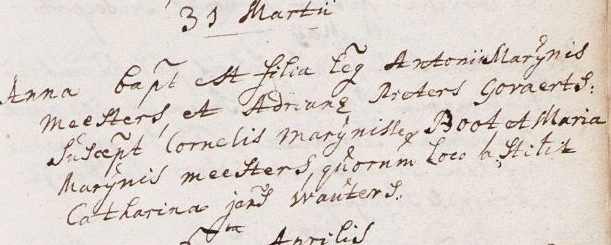 31 Martii
Anna bapt est filia leg Antonii Marÿnis
meesters, et Adrianę Peeters Govaerts:
Suscept Cornelis marÿnissę Boot et Maria
Marÿnis meesters, quorum loco stitit
Catharina jans Wauters.
Aprilis